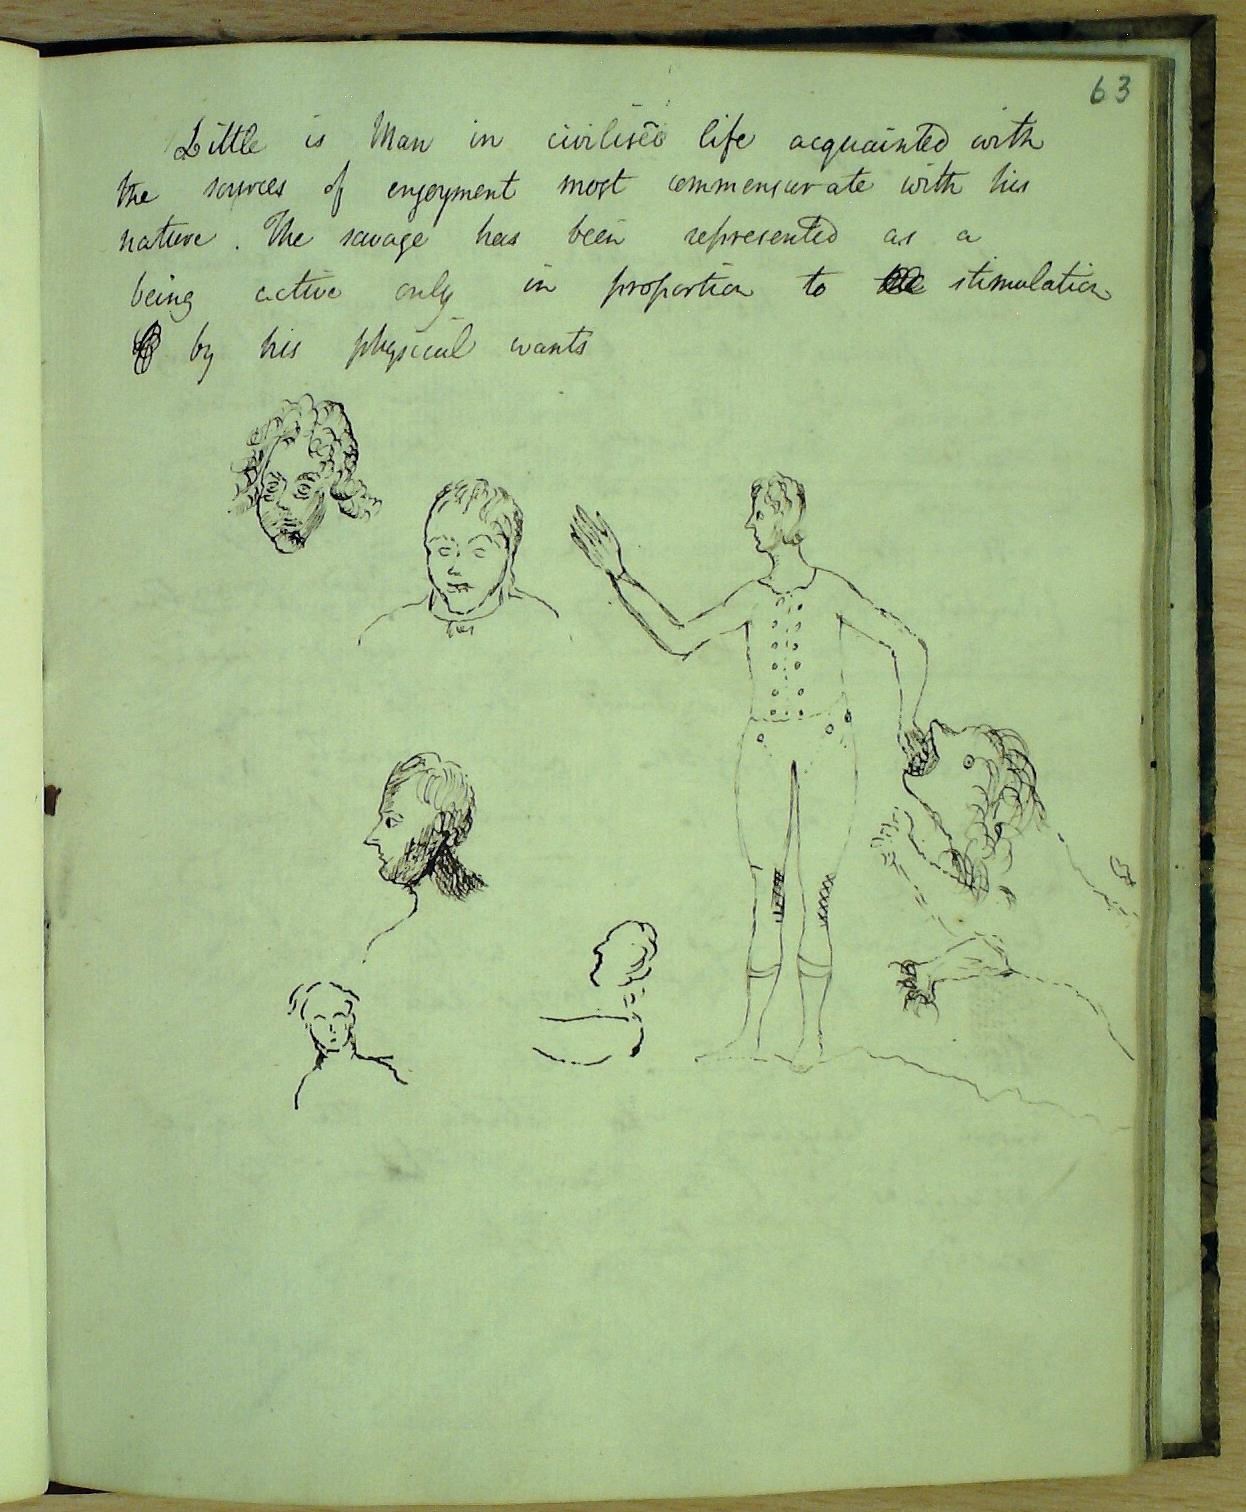 63
Little is Man in civilised life acquainted with
the sources of enjoyment most commensurate with his
nature. The savage has been represented as a
being active only in proportion to the stimulation
by his physical wants